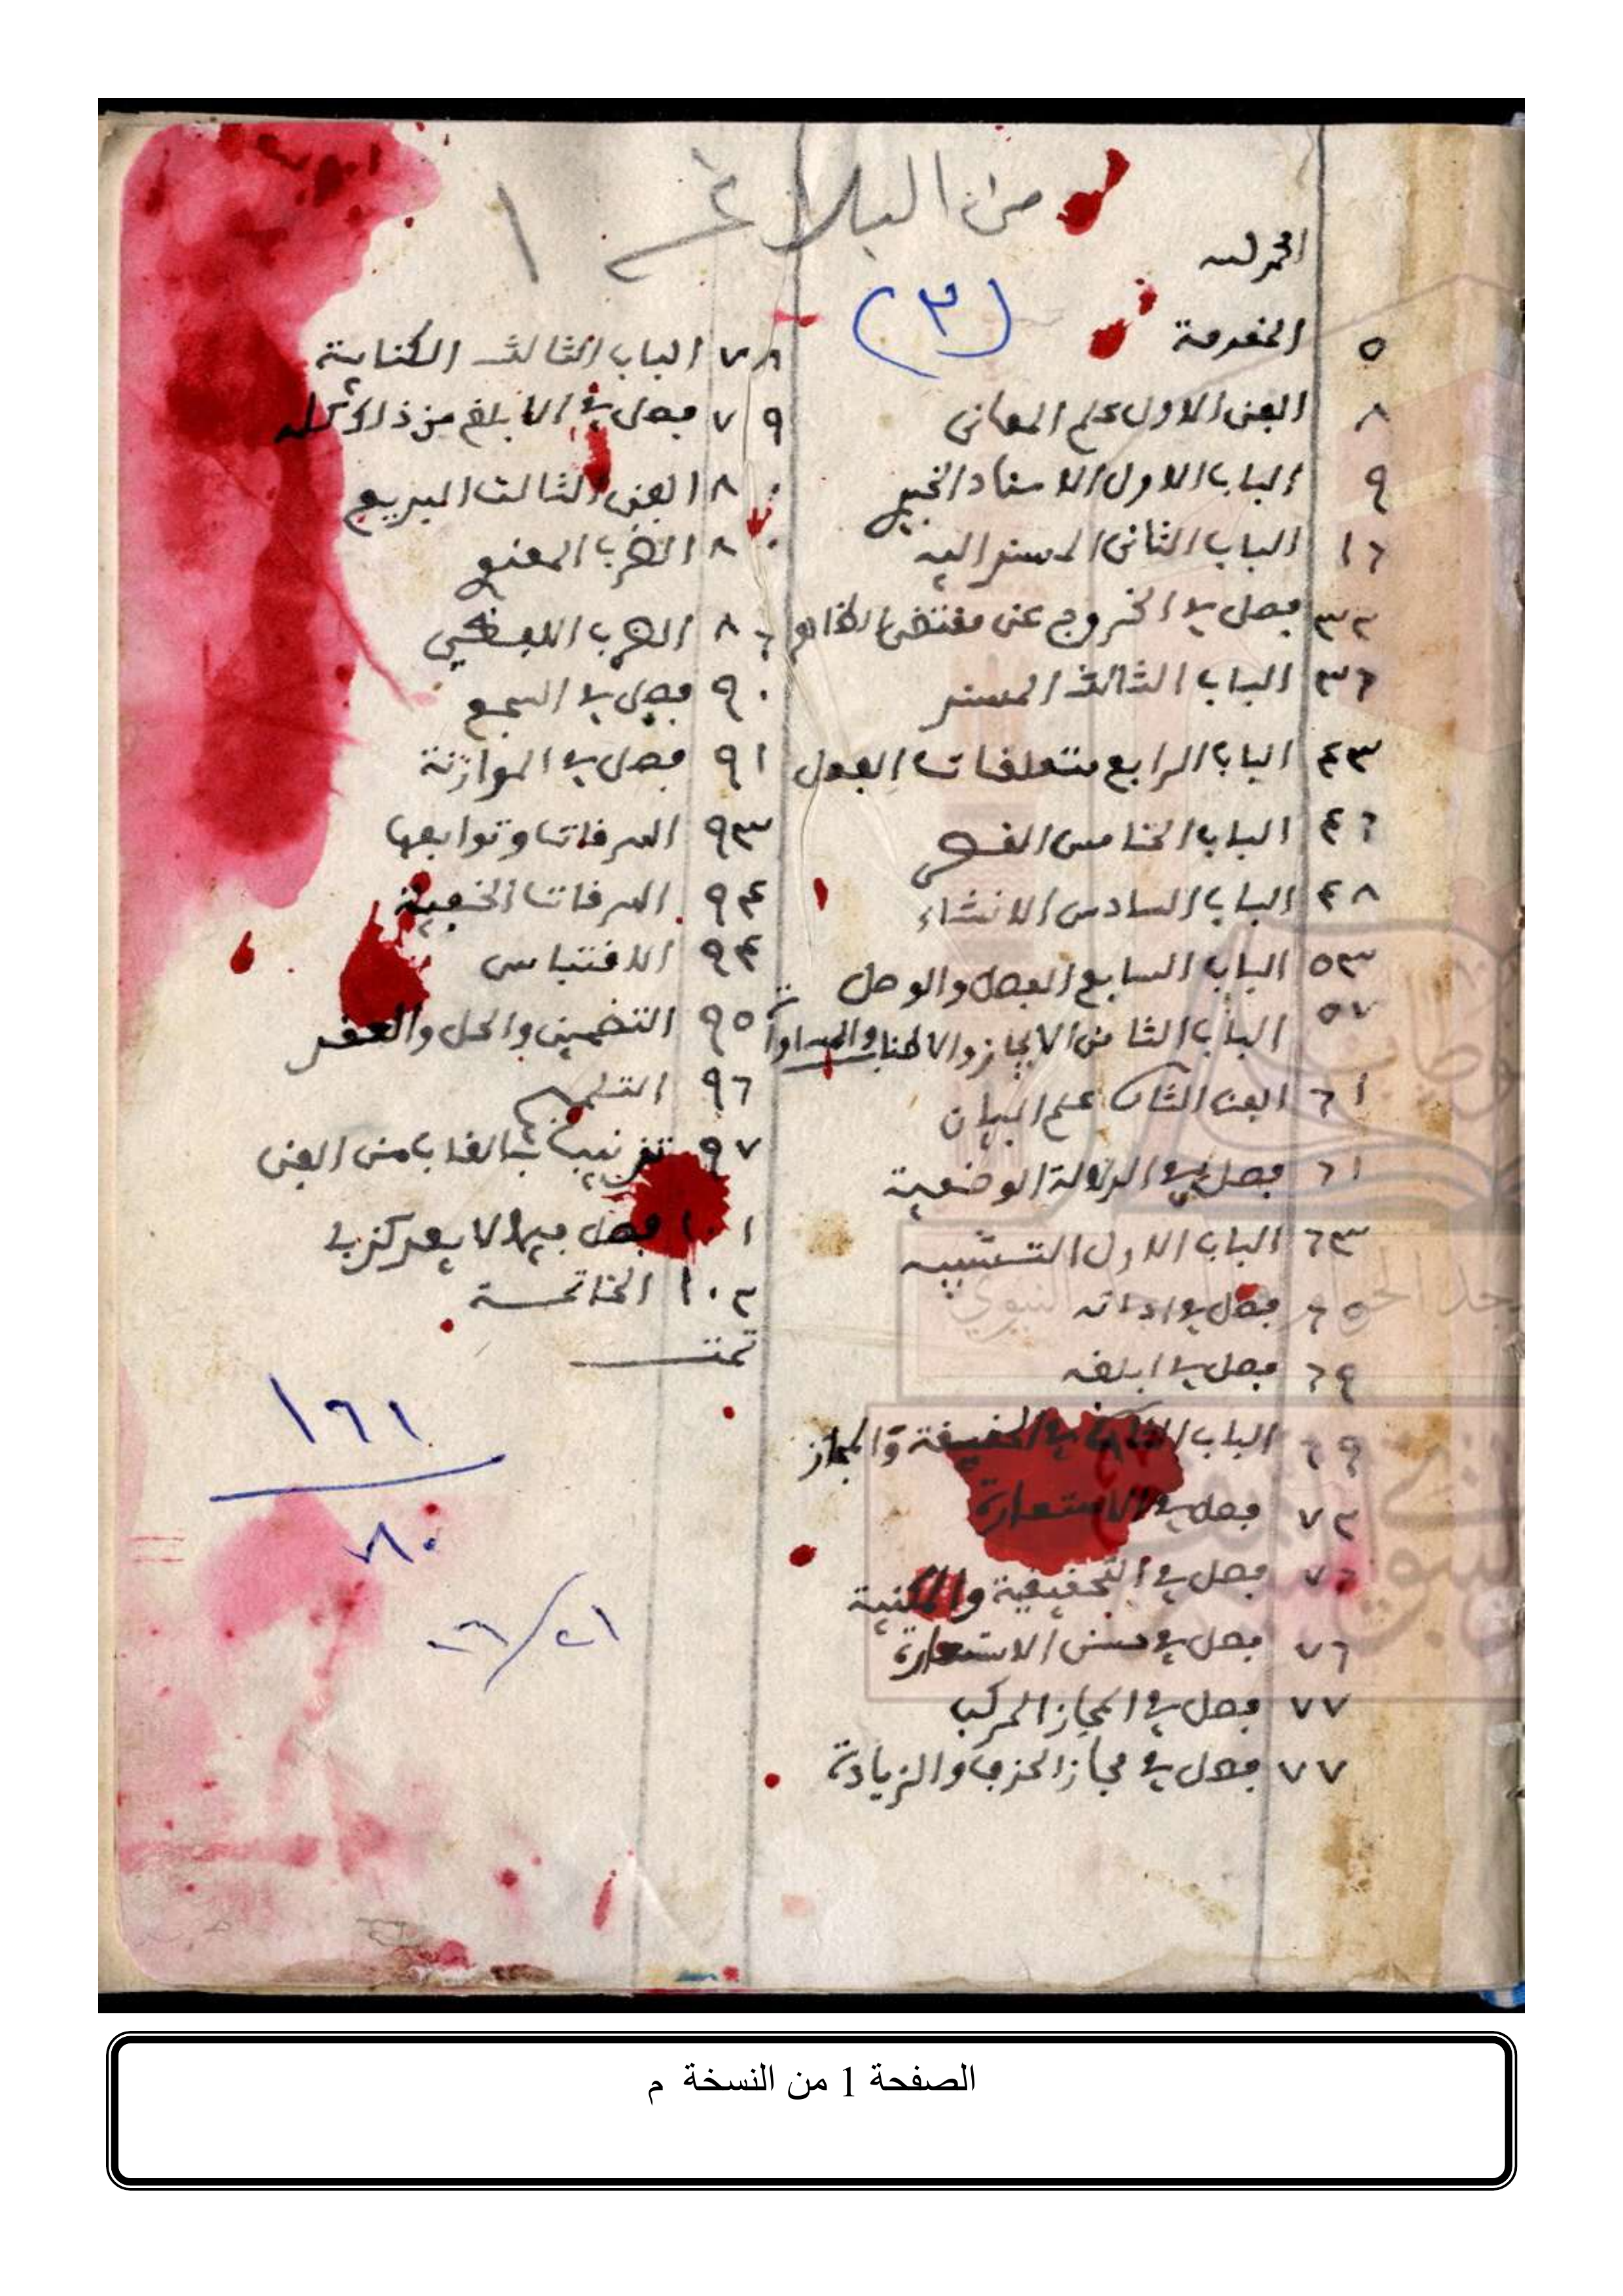 من البلاغة ١
(٣)
الحمد لله
٥ المقدمة
٨ الفن الاول علم المعانى
٩ الباب الاول الاسناد الخبرى
١٦ الباب الثانى المسند اليه
٣٢ فصل في الخروج عن مقتضى الظاهر
٣٦ الباب الثالث المسند
٤٣ الباب الرابع متعلقات الفعل
٤٦ الباب الخامس القصر
٤٨ الباب السادس الانشاء
٥٣ الباب السابع الفصل والوصل
٥٧ الباب الثامن الايجاز والاطناب والمساواة
٦١ الفن الثانى علم البيان
٦١ فصل في الدلالة الوضعية
٦٣ الباب الاول التشبيه
٦٥ فصل في اداته
٦٩ فصل في ابلغه
٦٩ الباب الثانى في الحقيقة والمجاز
٧٢ فصل في الاستعارة
٧٦ فصل في التحقيقية والمكنية
٧٦ فصل في حسن الاستعارة
٧٧ فصل في المجاز المركب
٧٧ فصل في مجاز الحذف والزيادة
٧٨ الباب الثالث الكناية
٧٩ فصل في الابلغ من ذلك كله
٨٠ الفن الثالث البديع
٨٠ الضرب المعنوي
٨٦ الضرب اللفظي
٩٠ فصل في السجع
٩١ فصل في الموازنة
٩٣ السرقات وتوابعها
٩٤ السرقات الخفية
٩٤ الاقتباس
٩٥ التضمين والحل والعقد
٩٦ التلميح
٩٧ تذنيب بالقاب من الفن
١٠١ فصل فيما لا يعد كذبا
١٠٢ الخاتمة
تمت
١٦١
٨٠
٢١/٢٦
الصفحة 1 من النسخة م